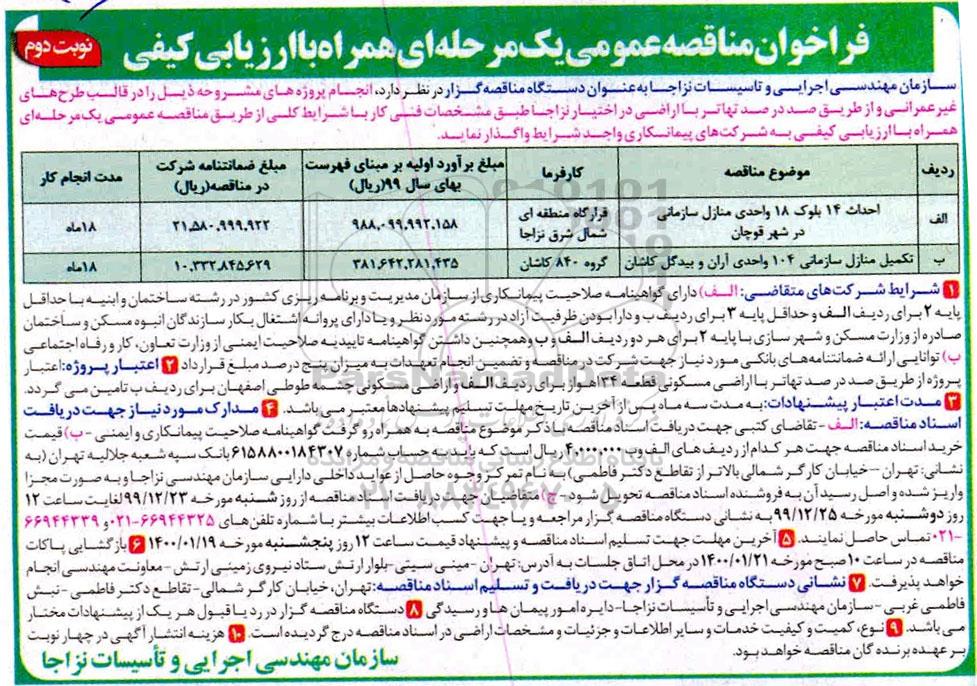 فراخوان مناقصه عمومی یک مرحله‌ای همراه با ارزیابی کیفی
نوبت دوم
سازمان مهندسی اجرایی و تاسیسات نزاجا به عنوان دستگاه مناقصه گزار در نظر دارد، انجام پروژه های مشروحه ذیل را در قالب طرح‌های
غیرعمرانی و از طریق صد در صد تهاتر با اراضی در اختیار نزاجا طبق مشخصات فنی کار با شرایط کلی از طریق مناقصه عمومی یک مرحله‌ای
همراه با ارزیابی کیفی به شرکت‌های پیمانکاری واجد شرایط واگذار نماید.
ردیف | موضوع مناقصه | کارفرما | مبلغ برآورد اولیه بر مبنای فهرست بهای سال ۹۹(ریال) | مبلغ ضمانتنامه شرکت در مناقصه(ریال) | مدت انجام کار
الف | احداث ۱۴ بلوک ۱۸ واحدی منازل سازمانی در شهر قوچان | قرارگاه منطقه ای شمال شرق نزاجا | ۹۸۸,۰۹۹,۹۹۲,۱۵۸ | ۲۱,۵۸۰,۹۹۹,۹۲۲ | ۱۸ماه
ب | تکمیل منازل سازمانی ۱۰۴ واحدی آران و بیدگل کاشان | گروه ۸۴۰ کاشان | ۳۸۱,۶۴۲,۲۸۱,۴۳۵ | ۱۰,۳۳۲,۸۴۵,۶۲۹ | ۱۸ماه
۱ شرایط شرکت‌های متقاضی: الف) دارای گواهینامه صلاحیت پیمانکاری از سازمان مدیریت و برنامه ریزی کشور در رشته ساختمان و ابنیه با حداقل
پایه ۲ برای ردیف الف و حداقل پایه ۳ برای ردیف ب و دارا بودن ظرفیت آزاد در رشته مورد نظر و یا دارای پروانه اشتغال بکار سازندگان انبوه مسکن و ساختمان
صادره از وزارت مسکن و شهر سازی با پایه ۲ برای هر دو ردیف الف و ب و همچنین داشتن گواهینامه تاییدیه صلاحیت ایمنی از وزارت تعاون، کار و رفاه اجتماعی
ب) توانایی ارائه ضمانتنامه‌های بانکی مورد نیاز جهت شرکت در مناقصه و تضمین انجام تعهدات به میزان پنج درصد مبلغ قرارداد ۲ اعتبار پروژه: اعتبار
پروژه از طریق صد در صد تهاتر با اراضی مسکونی قطعه ۱۳۴ اهواز برای ردیف الف و اراضی مسکونی چاه طوطی اصفهان برای ردیف ب تامین می گردد.
۳ مدت اعتبار پیشنهادات: به مدت سه ماه پس از آخرین تاریخ مهلت تسلیم پیشنهادها معتبر می باشد. ۴ مدارک مورد نیاز جهت دریافت
اسناد مناقصه: الف - تقاضای کتبی جهت دریافت اسناد مناقصه با ذکر موضوع مناقصه به همراه رو گرفت گواهینامه صلاحیت پیمانکاری و ایمنی - ب) قیمت
خرید اسناد مناقصه جهت هر کدام از ردیف های الف و ب ۴,۰۰۰,۰۰۰ ریال است که باید به حساب شماره ۶۱۵۸۸۰۰۱۸۴۳۰۷ بانک سپه شعبه جلالیه تهران (به
نشانی: تهران - خیابان کارگر شمالی بالاتر از تقاطع دکتر فاطمی) به نام تمرکز وجوه حاصل از عواید داخلی دارایی سازمان مهندسی نزاجا و به صورت مجزا
واریز شده و اصل رسید آن به فروشنده اسناد مناقصه تحویل شود. ج) متقاضیان جهت دریافت اسناد مناقصه از روز شنبه مورخه ۹۹/۱۲/۲۳ لغایت ساعت ۱۲
روز دوشنبه مورخه ۹۹/۱۲/۲۵ به نشانی دستگاه مناقصه گزار مراجعه و یا جهت کسب اطلاعات بیشتر با شماره تلفن های ۶۶۹۴۴۳۲۵-۰۲۱ و ۶۶۹۴۴۳۳۹
-۰۲۱ تماس حاصل نمایند. ۵ آخرین مهلت جهت تسلیم اسناد مناقصه و پیشنهاد قیمت ساعت ۱۲ روز پنجشنبه مورخه ۱۴۰۰/۰۱/۱۹ ۶ بازگشایی پاکات
مناقصه در ساعت ۱۰ صبح مورخه ۱۴۰۰/۰۱/۲۱ در محل اتاق جلسات به آدرس: تهران - مینی سیتی - بلوار ارتش ستاد نیروی زمینی ارتش - معاونت مهندسی انجام
خواهد پذیرفت. ۷ نشانی دستگاه مناقصه گزار جهت دریافت و تسلیم اسناد مناقصه: تهران، خیابان کارگر شمالی - تقاطع دکتر فاطمی - نبش
فاطمی غربی - سازمان مهندسی اجرایی و تأسیسات نزاجا - دایره امور پیمان ها و رسیدگی ۸ دستگاه مناقصه گزار در رد یا قبول هر یک از پیشنهادات مختار
می باشد. ۹ نوع، کمیت و کیفیت خدمات و سایر اطلاعات و جزئیات و مشخصات اراضی در اسناد مناقصه درج گردیده است. ۱۰ هزینه انتشار آگهی در چهار نوبت
بر عهده برنده گان مناقصه خواهد بود.
سازمان مهندسی اجرایی و تأسیسات نزاجا
ParsNamadData